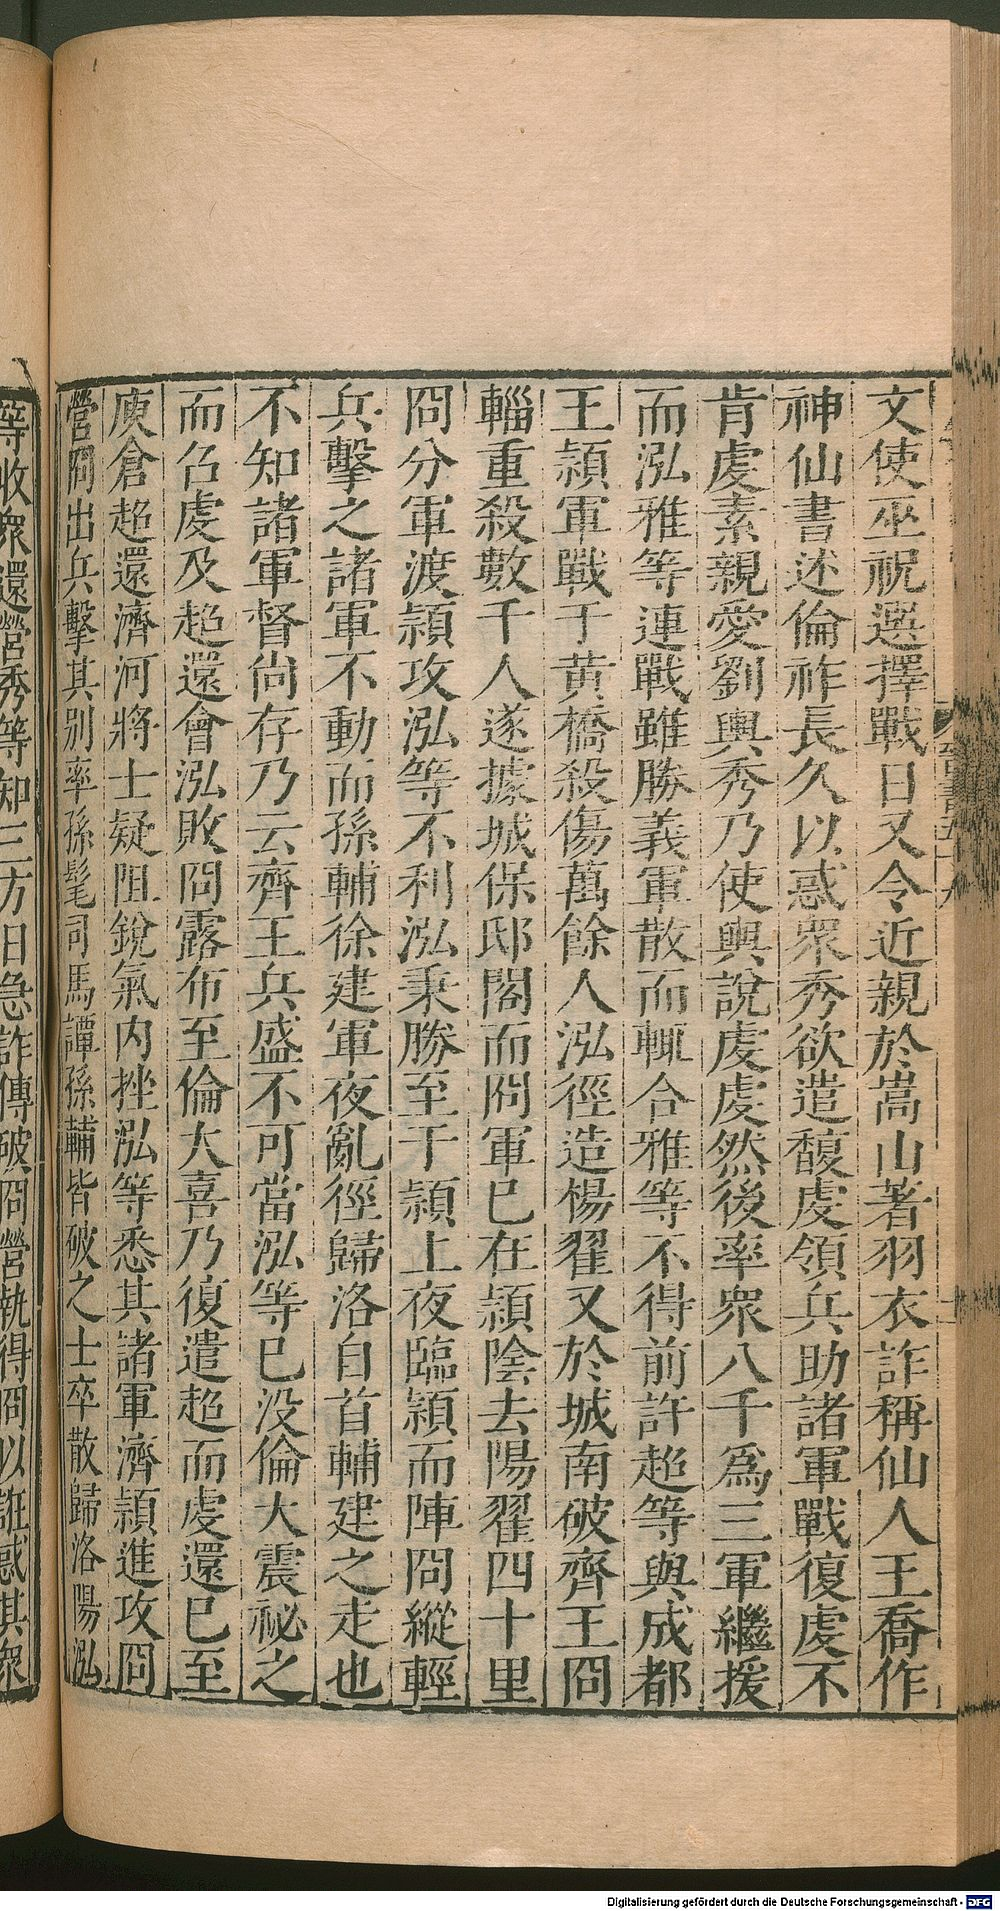 文使巫祝選擇戰日又令近親於嵩山著羽衣詐稱仙人王喬作
神仙書述倫祚長久以惑衆秀欲遣馥虔領兵助諸軍戰復虔不
肯虔素親愛劉輿秀乃使輿說虔虔然後率衆八千爲三軍繼援
而泓雅等連戰雖勝義軍散而輒合雅等不得前許超等與成都
王穎軍戰于黃橋殺傷萬餘人泓徑造楊翟又於城南破齊王冏
輜重殺數千人遂據城保邸閣而冏軍已在潁陰去陽翟四十里
冏分軍渡潁攻泓等不利泓乘勝至于潁上夜臨潁而陣冏縱輕
兵擊之諸軍不動而孫輔徐建軍夜亂徑歸洛自首輔建之走也
不知諸軍督尙存乃云齊王兵盛不可當泓等已没倫大震祕之
而召虔及超還會泓敗冏露布至倫大喜乃復遣超而虔還已至
庾倉超還濟河將士疑阻銳氣内挫泓等悉其諸軍濟潁進攻冏
營冏出兵擊其别率孫髦司馬譚孫輔皆破之士卒散歸洛陽泓
等收衆還營秀等知三方日急詐傳破冏營執得冏以誑惑其衆
Digitalisierung gefördert durch die Deutsche Forschungsgemeinschaft - DFG